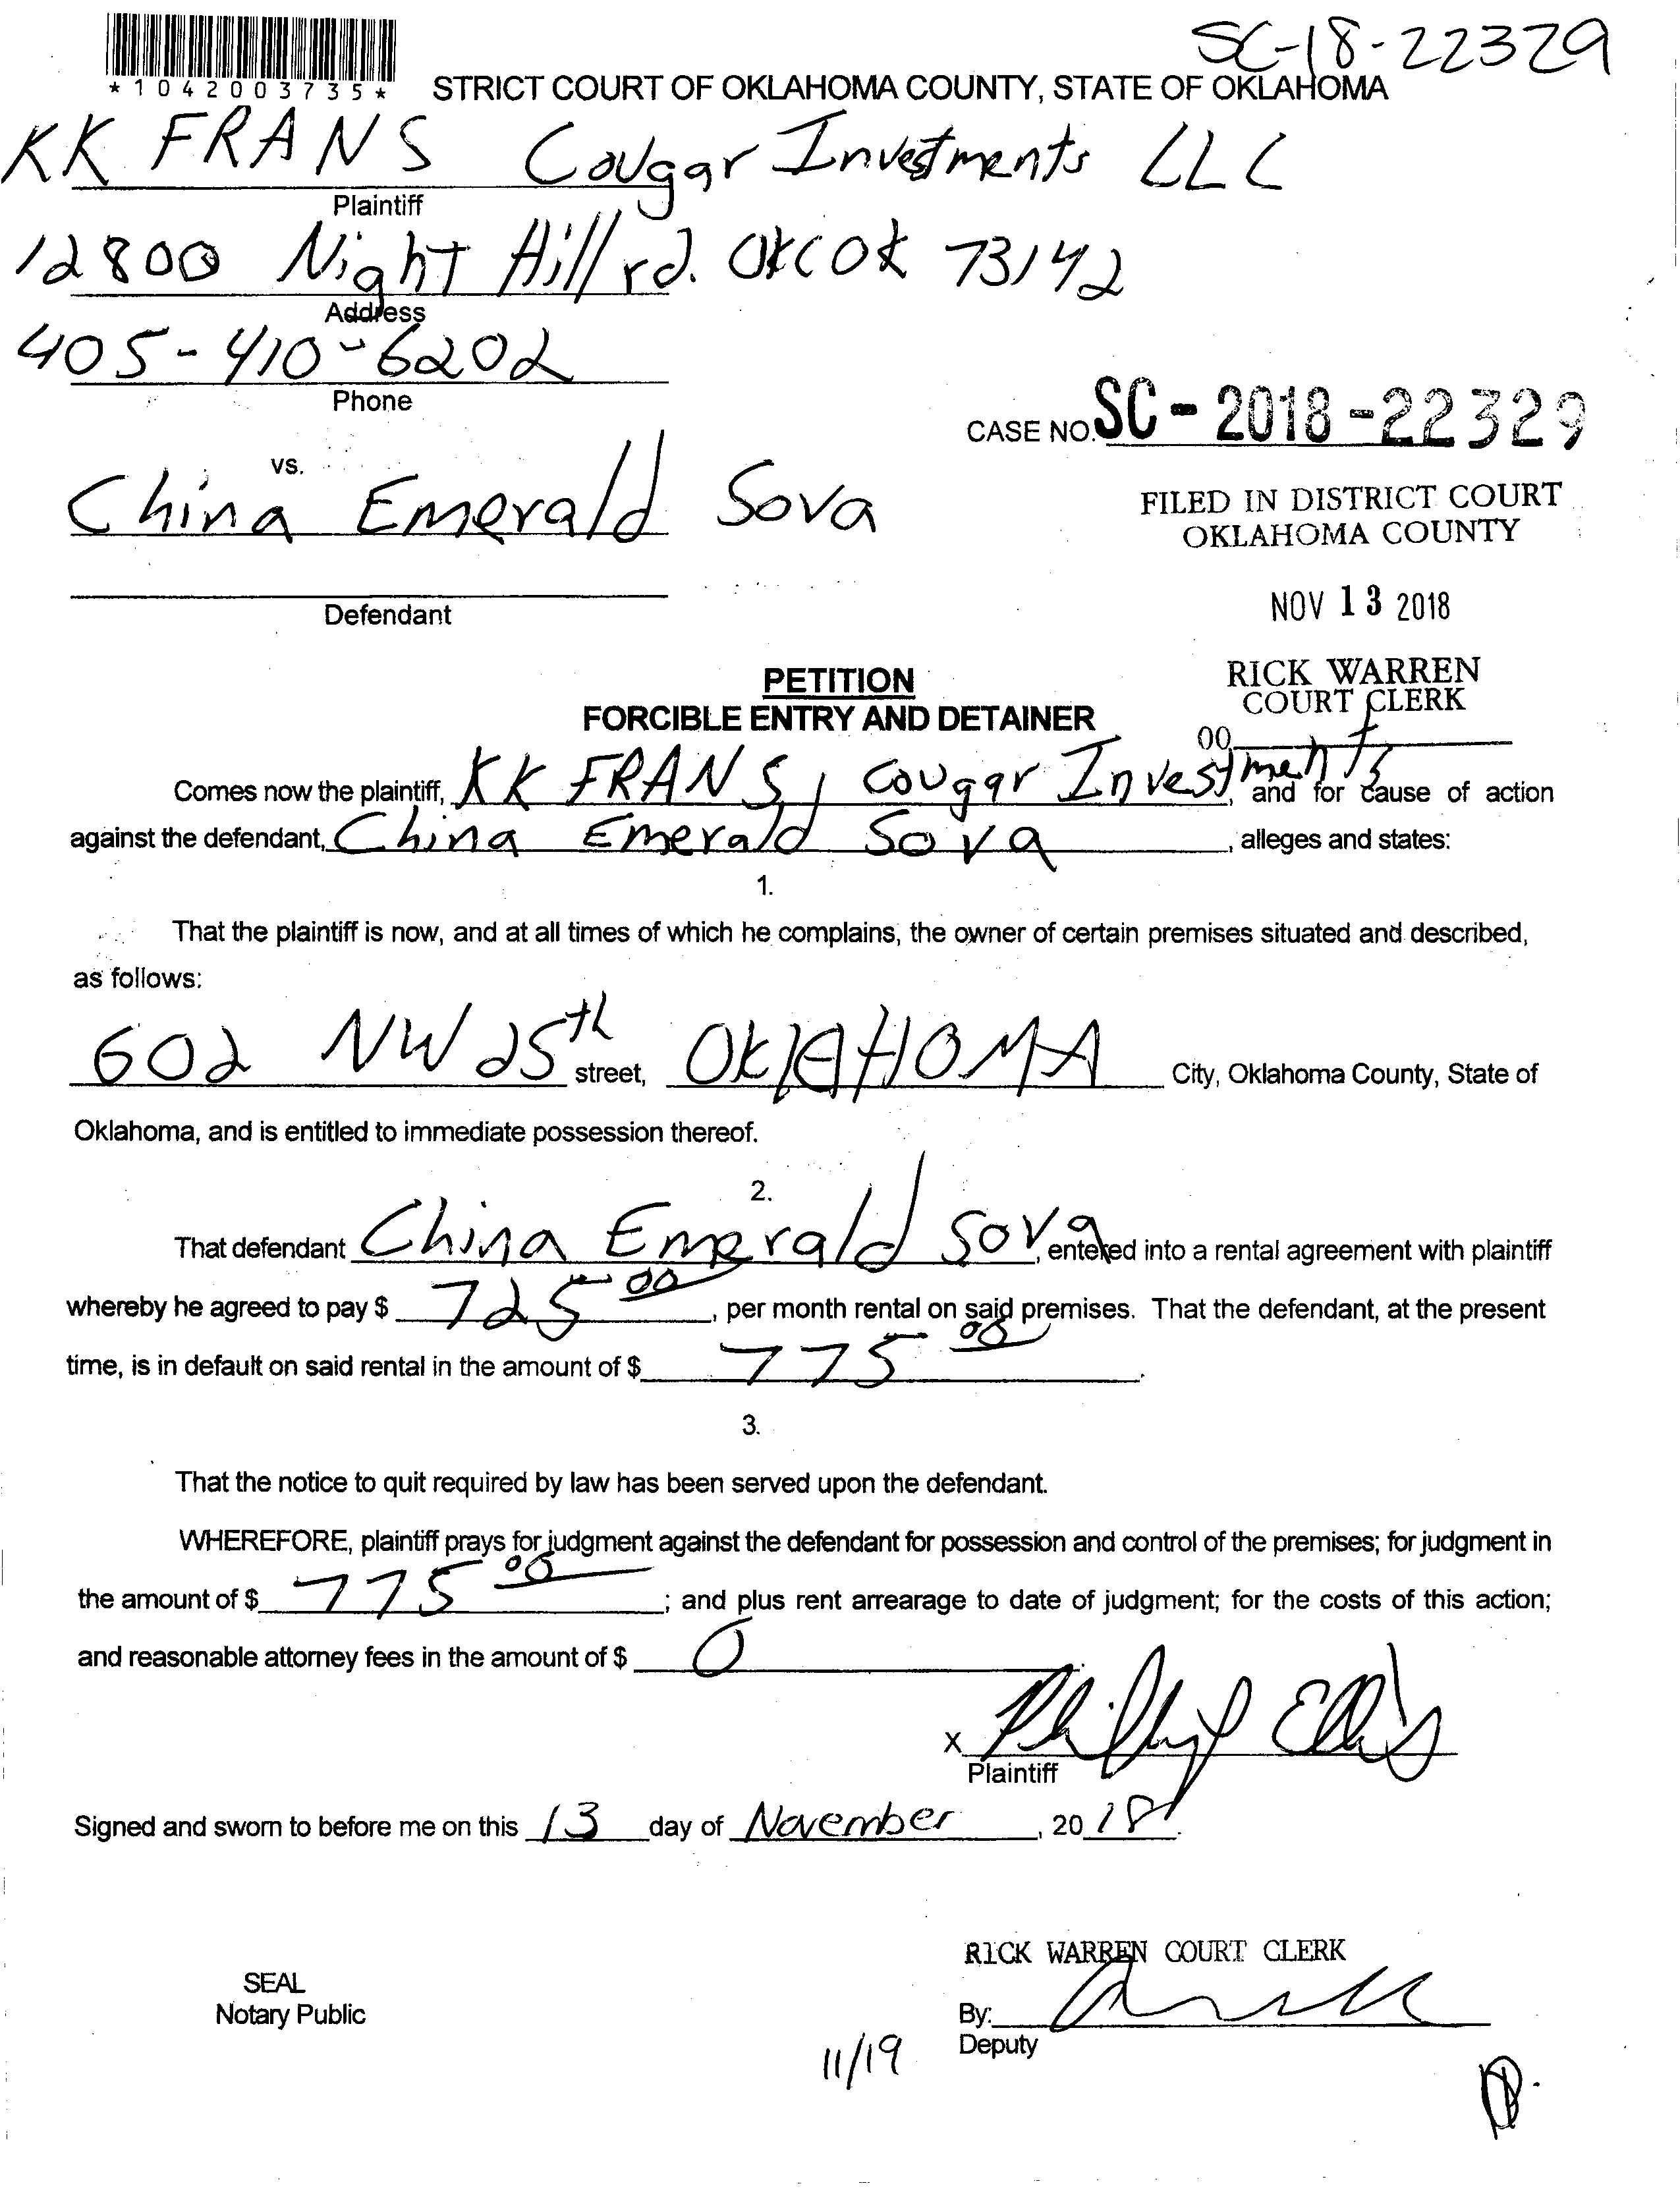 SC-18-22329
*1042003735*
STRICT COURT OF OKLAHOMA COUNTY, STATE OF OKLAHOMA
KK FRANS Cougar Investments LLC
Plaintiff
12800 Night Hill rd. OKC OK 73142
Address
405-410-6202
Phone
CASE NO. SC-2018-22329
vs.
China Emerald Sova
FILED IN DISTRICT COURT
OKLAHOMA COUNTY
Defendant
NOV 13 2018
PETITION
FORCIBLE ENTRY AND DETAINER
RICK WARREN
COURT CLERK
00
Comes now the plaintiff, KK FRANS, Cougar Investments, and for cause of action
against the defendant, China Emerald Sova, alleges and states:
1.
That the plaintiff is now, and at all times of which he complains, the owner of certain premises situated and described,
as follows:
602 NW 25th street, OKlAHOMA City, Oklahoma County, State of
Oklahoma, and is entitled to immediate possession thereof.
2.
That defendant China Emerald Sova, entered into a rental agreement with plaintiff
whereby he agreed to pay $ 725 00, per month rental on said premises. That the defendant, at the present
time, is in default on said rental in the amount of $ 775 00.
3.
That the notice to quit required by law has been served upon the defendant.
WHEREFORE, plaintiff prays for judgment against the defendant for possession and control of the premises; for judgment in
the amount of $ 775 00; and plus rent arrearage to date of judgment; for the costs of this action;
and reasonable attorney fees in the amount of $ 0.
X Phillip Ellis
Plaintiff
Signed and sworn to before me on this 13 day of November, 2018.
RICK WARREN COURT CLERK
SEAL
Notary Public
By:
Deputy
11/19